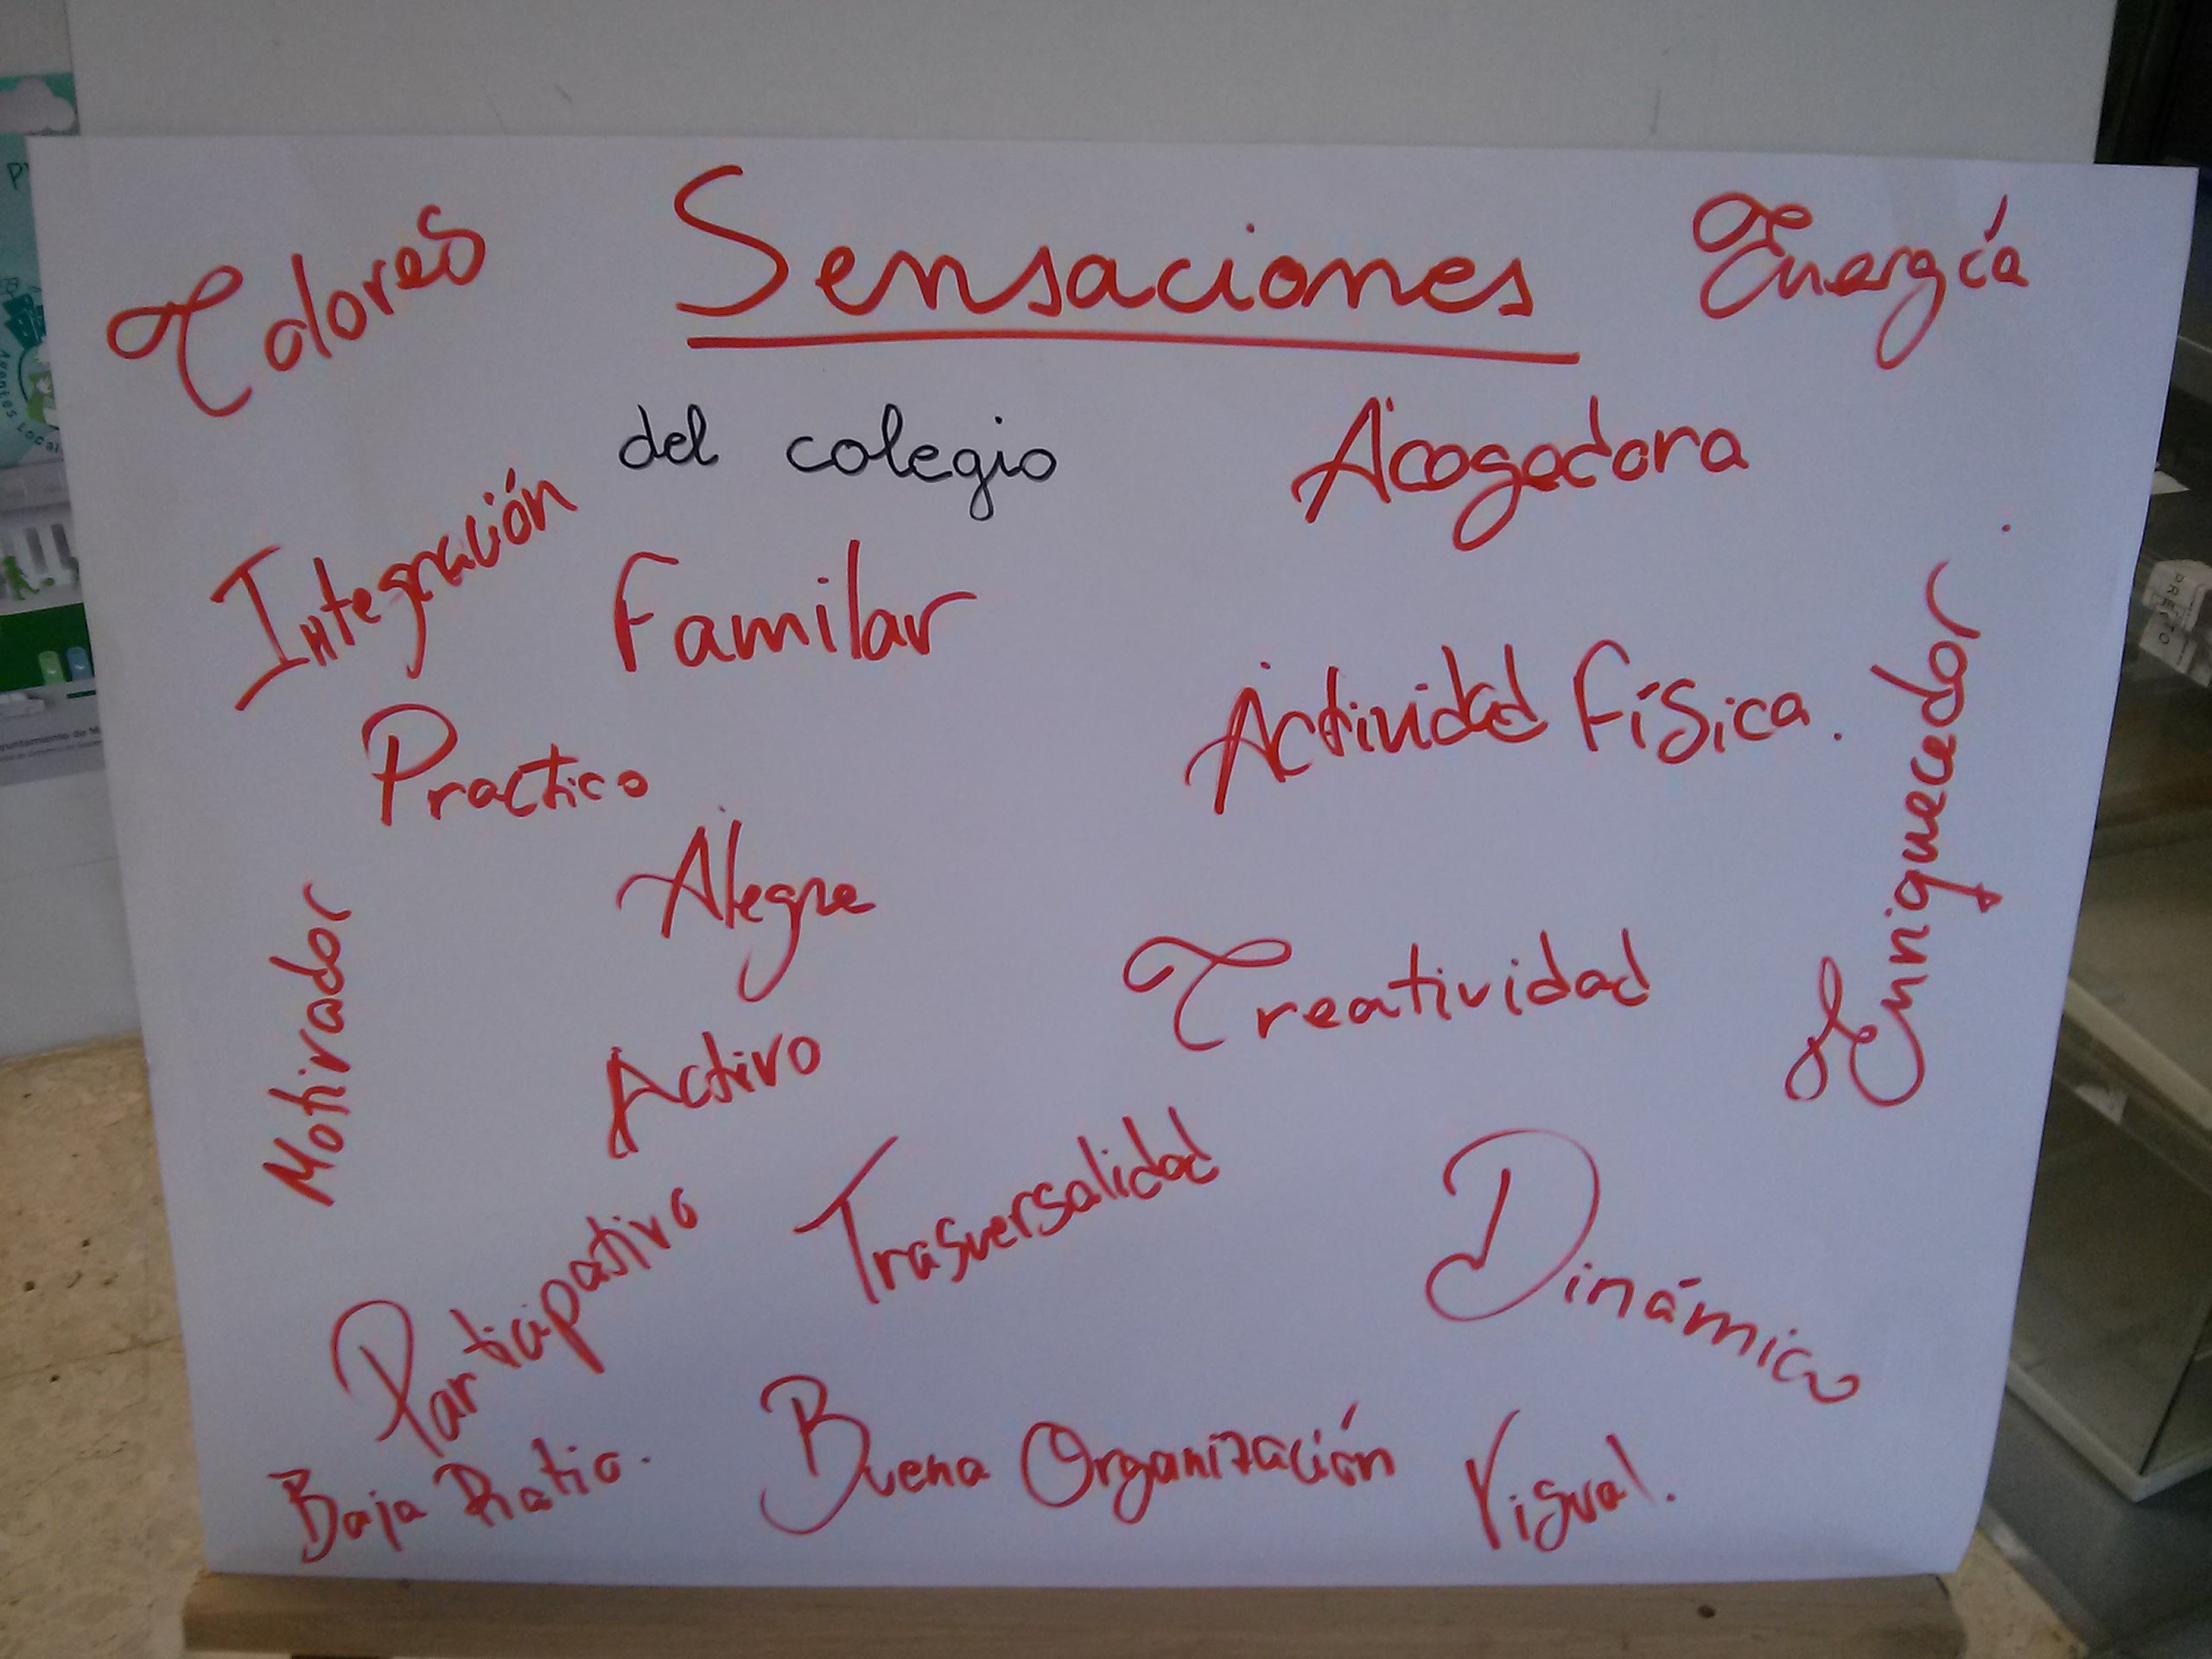 Colores
Sensaciones
Energía
del colegio
Acogedora
Integración
Familar
Practico
Actividad Física.
Enriquecedor
Alegre
Motivador
Creatividad
Activo
Trasversalidad
Participativo
Dinámico
Baja Ratio.
Buena Organización
Visual.